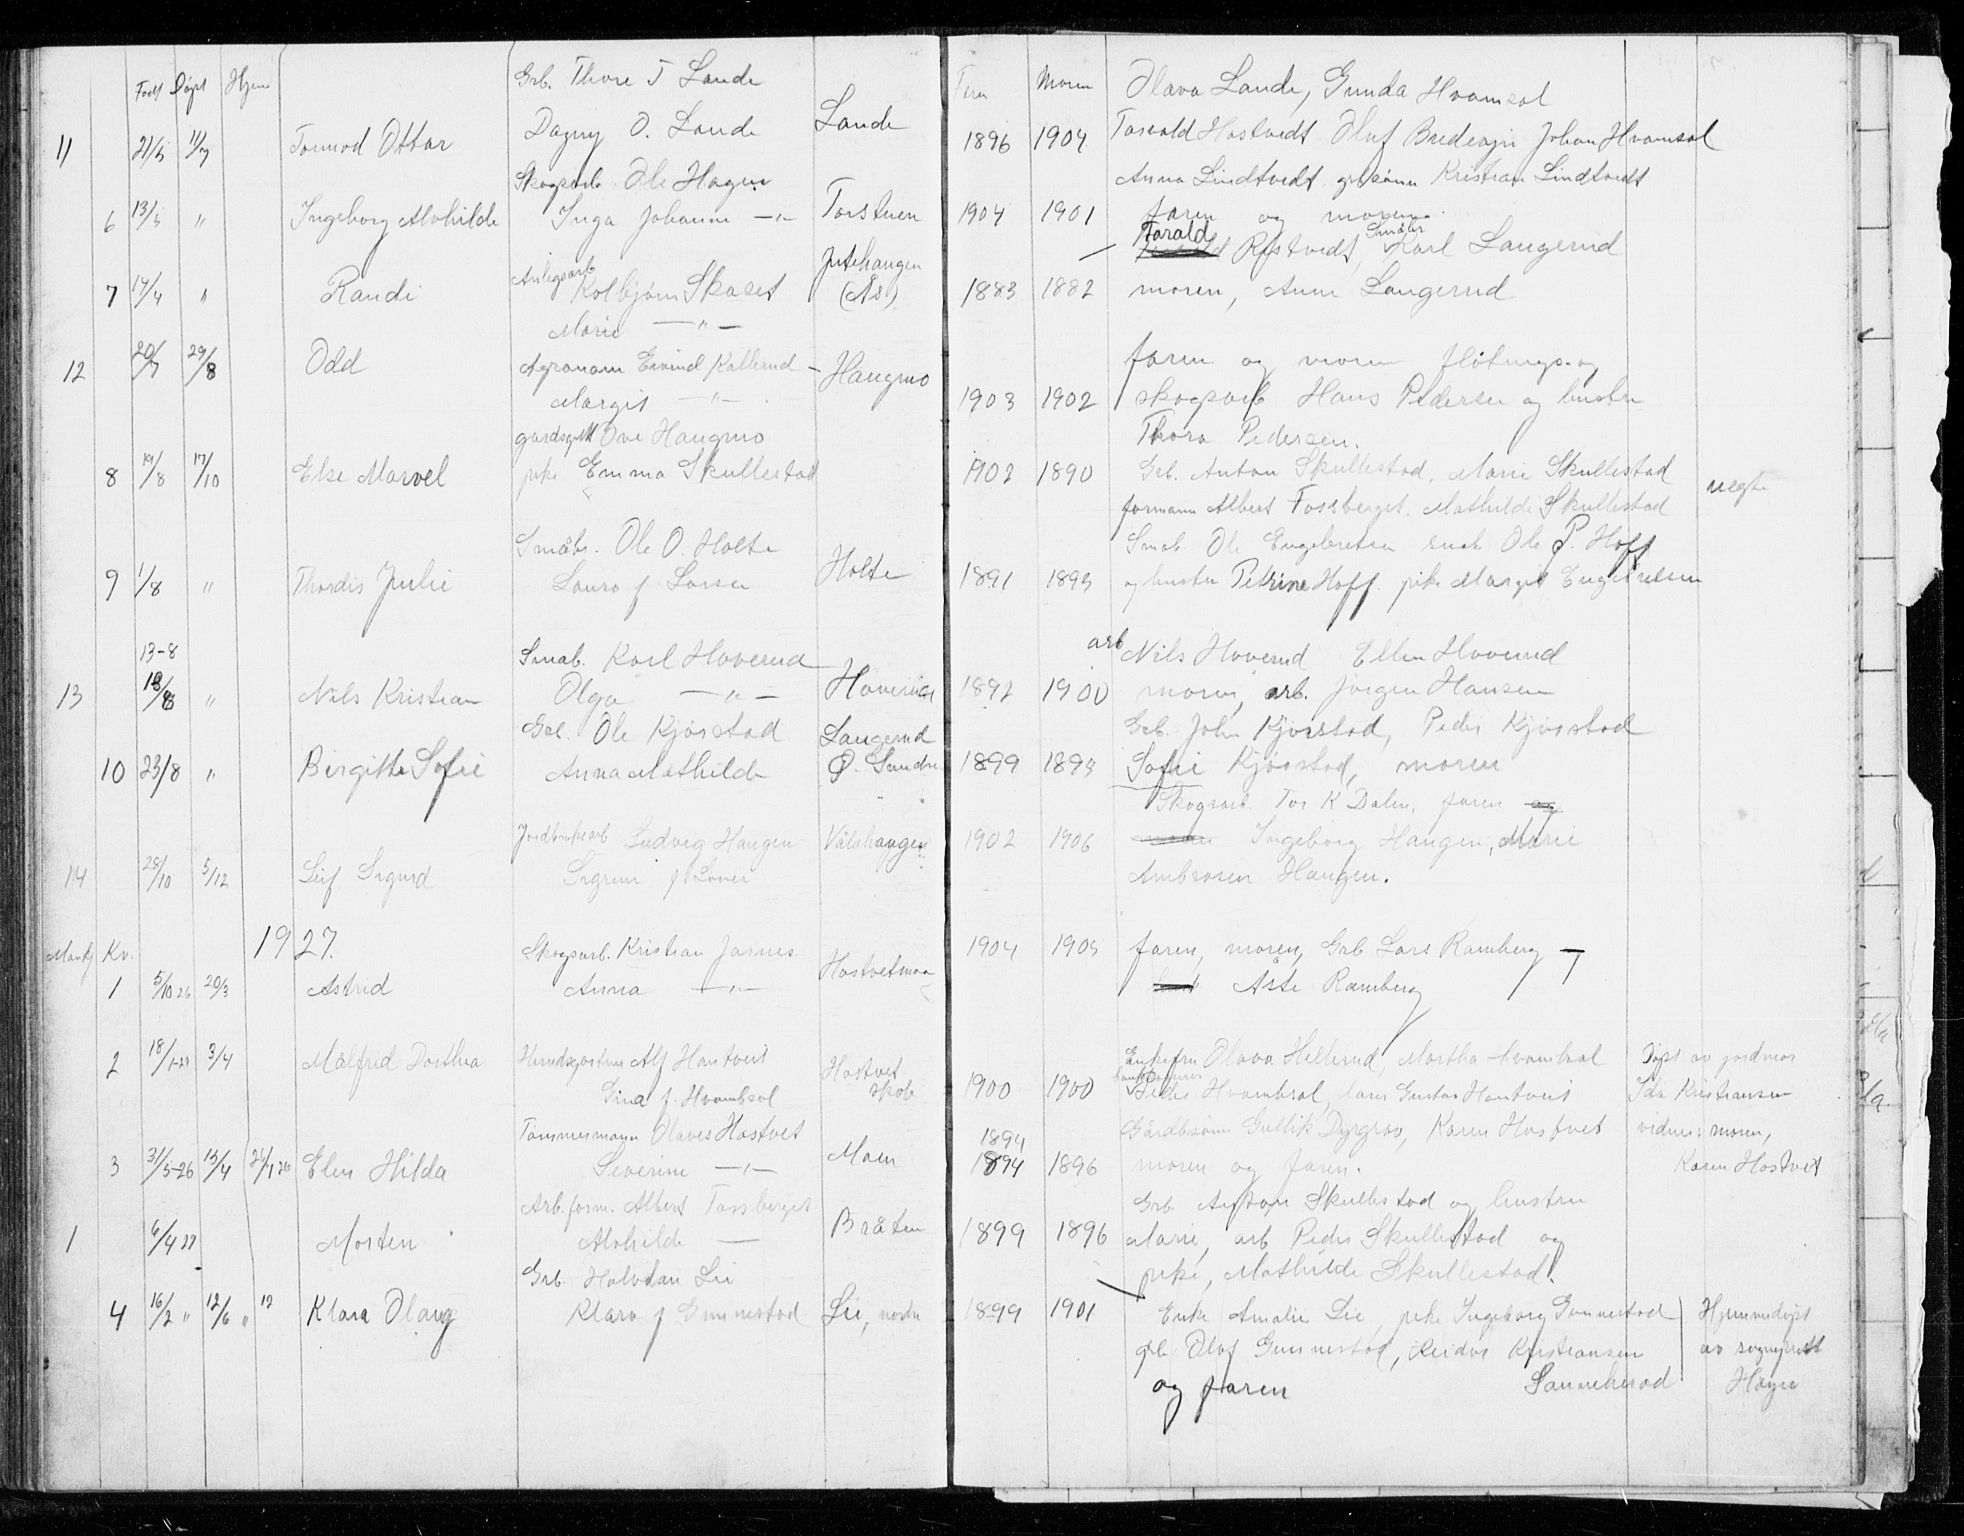 Født Døpt Hjem
Grb. Thore T Lande
Dagny O. Lande
Lande
11 21/5 11/7 Tormod Ottar
Skogsarb. Ole Hagen
6 13/5 " Ingeborg Alvhilde Inga Johanne —"— Torstuen
Anlegsarb Jutehaugen
7 14/4 " Randi Kolbjørn Skaset (Ås)
Marie —"—
12 29/8 Odd Agronom Eivind Kallerud – Haugmo
Margit —"—
Ove Haugmo
8 19/8 17/10 Else Marvel pike Emma Skullestad
Småbr. Ole O. Holte
9 1/8 " Thordis Julie Laura f Larsen Holte
13-8 Småb. Karl Haverud
13 " Nils Kristian Olga —"— Haverud
Ole Kjørstad Langerud
10 23/8 " Birgitte Sofie Anna Mathilde Ø. Sandsv
Jordbruksarb Ludvig Haugen Vålehaugen
14 28/10 5/12 Leif Sigurd Sigrun f Lover
1927.
Mank Kv. Skogsarb. Kristian Jarnes
1 5/10 26 20/3 Astrid Anna —"— Hostvetmoen
2 18/1-27 3/4 Målfrid Dorthea Alf Hontveit Hostvet skole
Gina f. Hvambsal
Tømmermann Olaves Hostvet
3 31/5-26 13/4 Elen Hilda Severine —"— Moen
Arb.form. Albert Fossberget
1 6/4 27 Morten Alvhilde — Bråten
Grb. Halvdan Lie
4 16/2 " 12/6 " 12 Klara Olaug Klara f Gunnestad Lie, nordre
Faren Moren Olava Lande, Gunda Hvamsal
1896 1904 Torvald Hostvedt Olaf Johan Hvamsal
Anna Lindtvedt, grbsønn Kristian Lindtvedt
1904 1901 faren og moren.
Harald Røstvedt, Småbr Karl Langerud
1883 1882 moren, Anne Langerud
faren og moren fløtnings- og
1903 1902 skogsarb Hans Pedersen og hustru
Thora Pedersen.
1902 1890 Grb. Anton Skullestad, Marie Skullestad uegte
formann Albert Fossberget. Mathilde Skullestad
Småb Ole Engebretsen Ole P. Hoff
1891 1893 og hustru Petrine Hoff. pike Margit Engebretsen
arb Nils Haverud Ellen Haverud
1892 1900 moren, arb. Jørgen Hansen
Grb. John Kjørstad, Peder Kjørstad
1899 1893 Sofie Kjørstad, moren
Skogsarb. Tor K Dalen, faren og
1902 1906 Ingeborg Haugen, Marie
Ambrosen Haugen.
1904 1905 faren, moren, Grb Lars Ramberg —
Aste Ramberg
Enkefru Olava Hellerud, Martha Hvambsal Døpt av jordmor
1900 1900 Hvambsal, Gustav Hontveit Ida Kristiansen
Gårdbsønn Gullik Dyrgrav, Karen Hostvet vidner: moren,
1894
1894 1896 moren og faren. Karen Hostvet
Grb. Anton Skullestad og hustru
1899 1896 Marie, arb Peder Skullestad og
pike, Mathilde Skullestad.
1899 1901 Enke Amalie Lie, pike Ingeborg Gunnestad Hjemmedøpt
grb. Olaf Gunnestad, Reidar Kristiansen av sogneprest
og faren Sanneherad Høyer